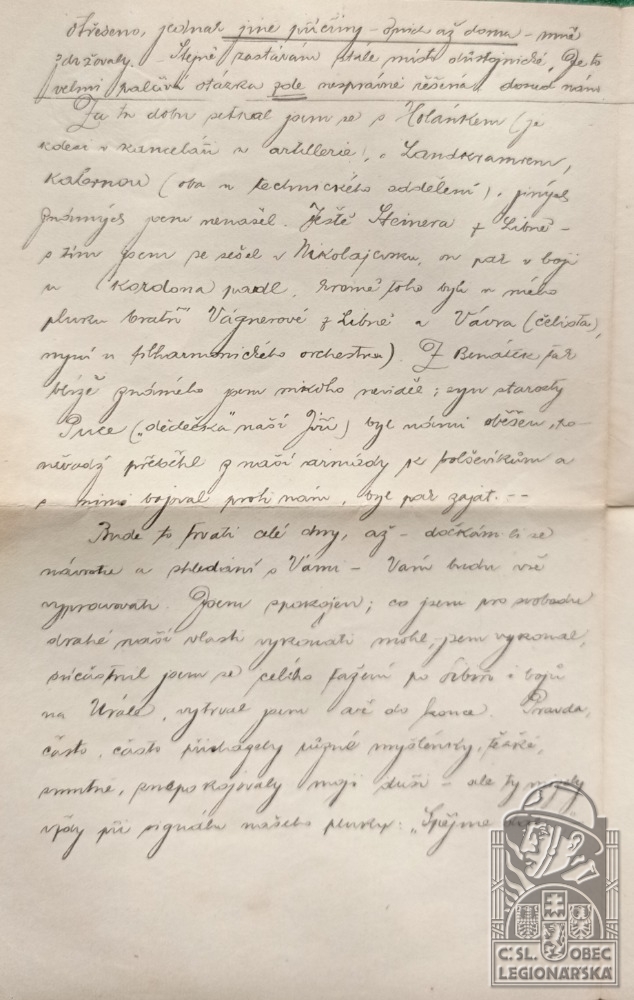 otřešeno, jednak jiné příčiny – až doma – mně
zdržovaly. – Stejně zastávám stále místo důstojnické. Je to
velmi palčivá otázka zde nesprávně řešená dosud námi
Za tu dobu setkal jsem se s Holánkem (je
kdesi v kanceláři u artillerie), s Landkramrem,
(oba u technického oddělení), jiných
známých jsem nenašel. Ještě Steinera z Libně –
s tím jsem se sešel v Nikolajevsku, on pak v boji
u Kordona padl. Kromě toho byli u mého
pluku bratři Vágnerové z Libně a Vávra (čelista),
nyní u filharmonického orchestra). Z Benátek pak
blíže známého jsem nikoho neviděl; syn starosty
("dědečka" naší Jiří) byl námi oběšen, po-
něvadž přeběhl z naší armády ke bolševikům a
s nimi bojoval proti nám, byl pak zajat. --
Bude to trvati celé dny, až – dočkám-li se
návratu a shledání s Vámi – Vám budu vše
vypravovati. Jsem spokojen; co jsem pro svobodu
drahé naší vlasti vykonati mohl, jsem vykonal,
súčastnil jsem se celého tažení po Sibiři i bojů
na Urále, vytrval jsem až do konce. Pravda,
často, často přicházely různé myšlénky, těžké,
smutné, znepokojovaly moji duši – ale ty
vždy při signálu našeho pluku: "Spějme
Č. SL. OBEC
LEGIONÁŘSKÁ